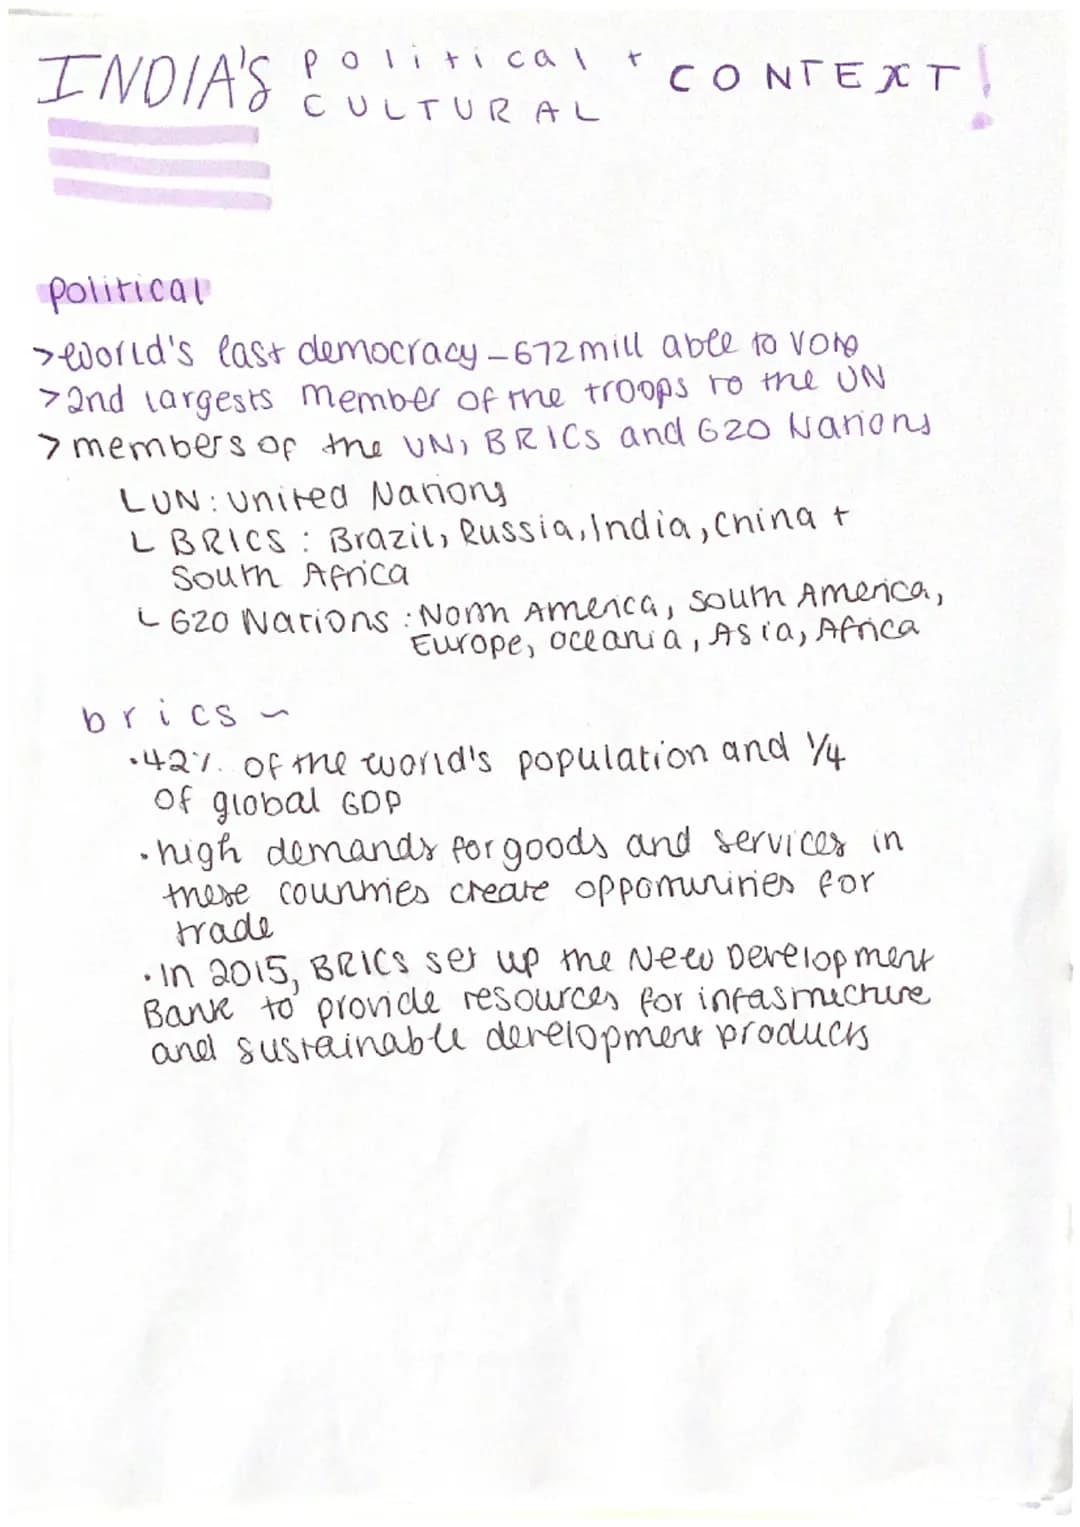 INDIA'S political + CONTEXT!
CULTURAL
political
>world's last democracy - 672 mill able to vote
>2nd largests member of the troops to the UN
>members of the UN, BRICs and G20 Nations
L UN: United Nations
L BRICS : Brazil, Russia, India, China +
South Africa
L G20 Nations : North America, South America,
Europe, Oceania, Asia, Africa
brics ~
·42% of the world's population and 1/4
of global GDP
·high demands for goods and services in
these countries create opportunities for
trade
·In 2015, BRICS set up the New Development
Bank to provide resources for infasructure
and sustainable development products